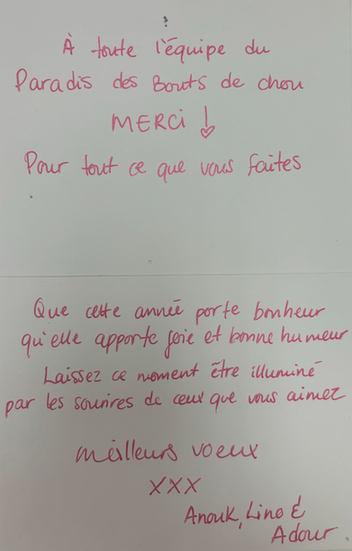 À toute l'équipe du
Paradis des Bouts de chou
MERCI !
Pour tout ce que vous faites
Que cette année porte bonheur
qu'elle apporte joie et bonne humeur
Laissez ce moment être illuminé
par les sourires de ceux que vous aimez
meilleurs voeux
XXX
Anouk, Lino &
Adour